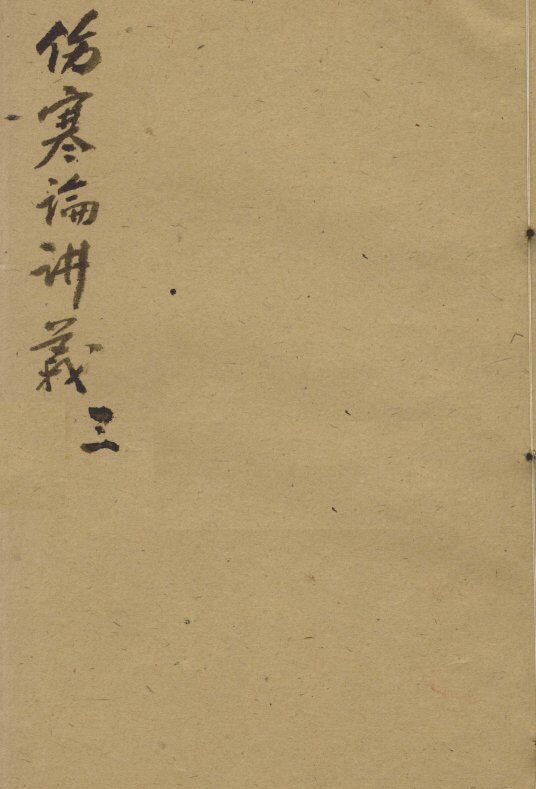 伤寒論讲義三